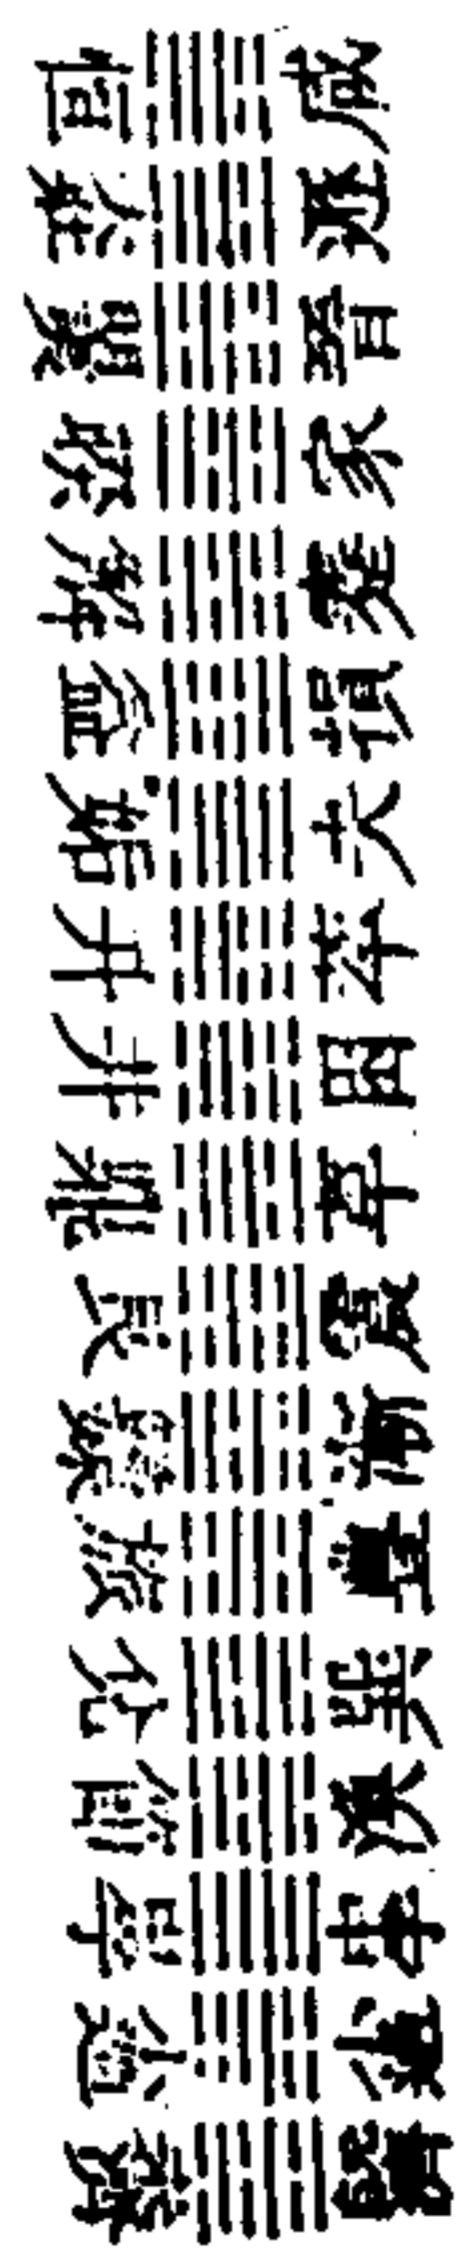 咸遯晉家蹇損夬萃困革震漸豐巽渙中孚小過既濟
恒大壯明夷睽解益姤升井鼎艮歸妹旅兌節中孚小過未濟